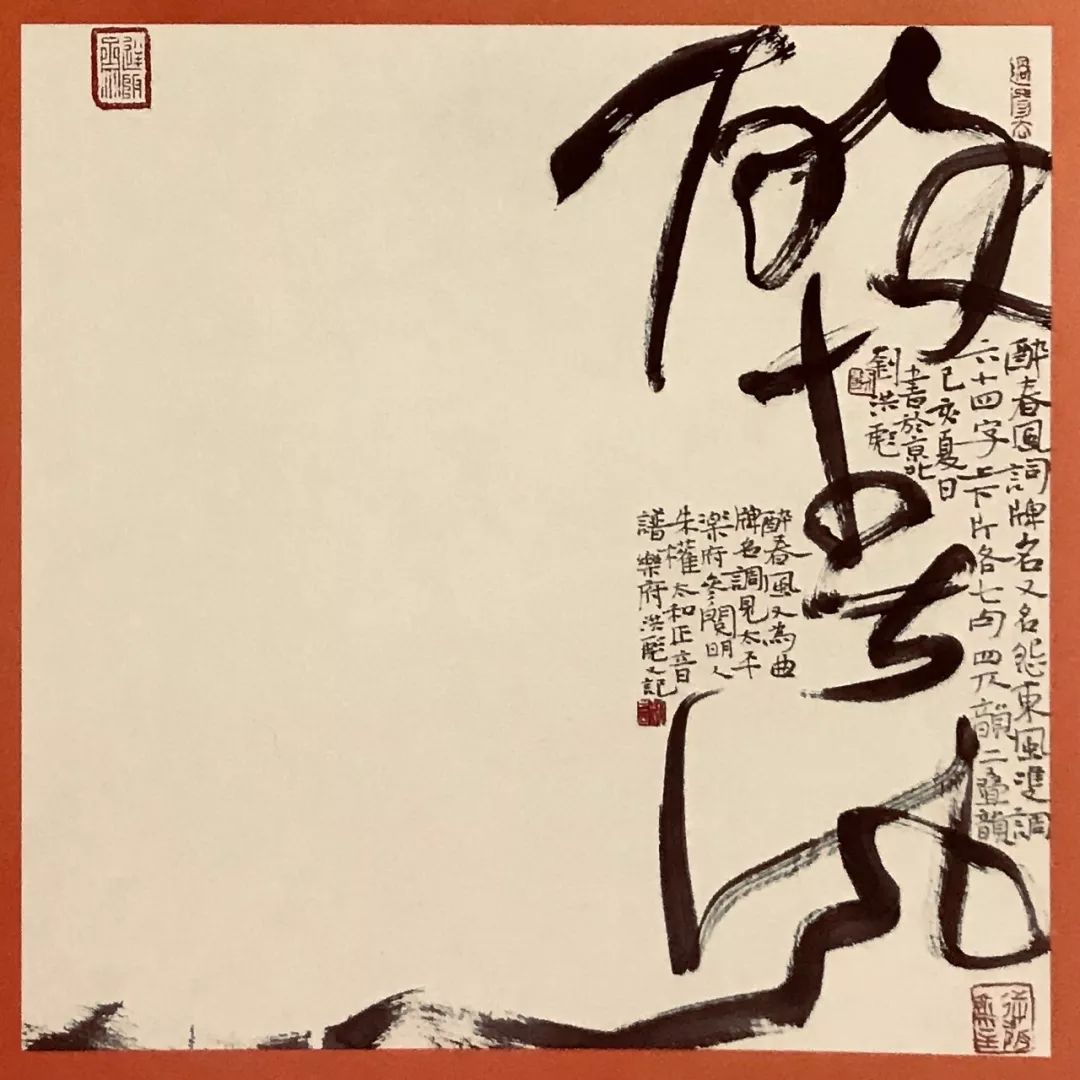 醉春風
醉春風詞牌名又名怨東風雙調
六十四字上下片各七句四仄韻二疊韻
己亥夏日
書於京北
劉洪彪
醉春風又為曲
牌名調見太平
樂府參閱明人
朱權太和正音
譜樂府洪彪又記